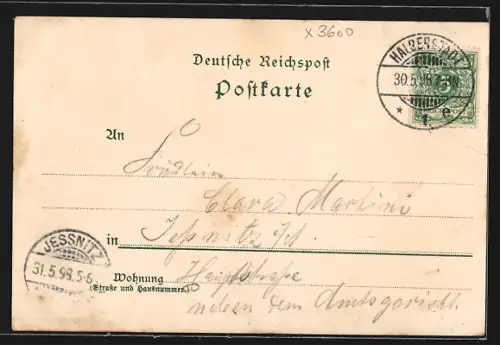 x 3600
Deutsche Reichspost
Postkarte
HALBERSTADT
30.5.98.7-8N.
* 1 e
5
An Fräulein
Clara Martini
in Jeßnitz i/A
JESSNITZ
31.5.98.5-6
Wohnung Hauptstraße
(Straße und Hausnummer.)
neben dem Amtsgericht.